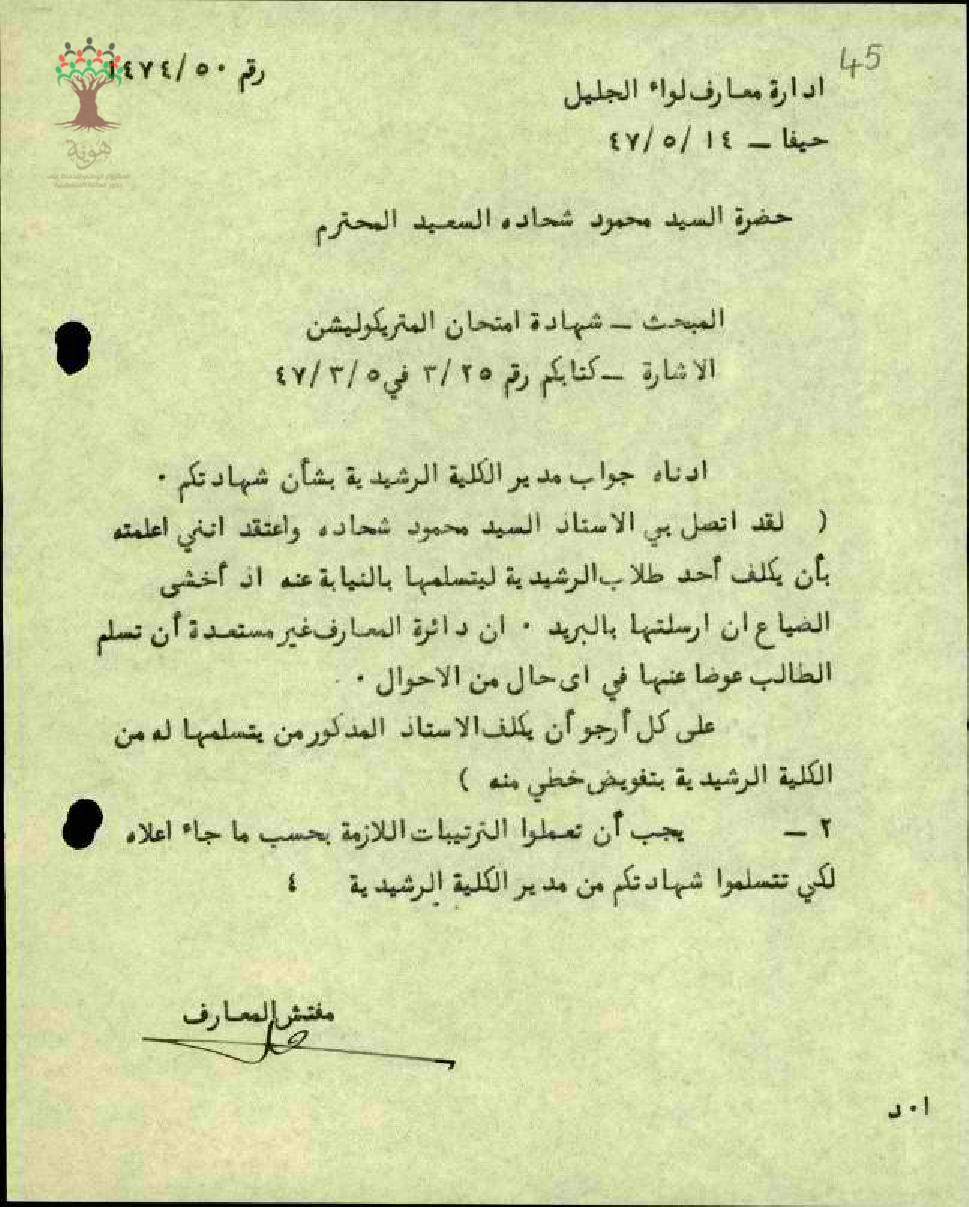 45
رقم ١٤٧٤/٥٠
ادارة معارف لواء الجليل
حيفا – ١٤ /٥ /٤٧
هوية
حضرة السيد محمود شحاده السعيد المحترم
المبحث – شهادة امتحان المتريكوليشن
الاشارة – كتابكم رقم ٣/٢٥ في ٤٧/٣/٥
ادناه جواب مدير الكلية الرشيدية بشأن شهادتكم ٠
( لقد اتصل بي الاستاذ السيد محمود شحاده واعتقد انني اعلمته
بأن يكلف أحد طلاب الرشيدية ليتسلمها بالنيابة عنه اذ أخشى
الضياع ان ارسلتها بالبريد ٠ ان دائرة المعارف غير مستعدة أن تسلم
الطالب عوضا عنها في اى حال من الاحوال ٠
على كل أرجو أن يكلف الاستاذ المذكور من يتسلمها له من
الكلية الرشيدية بتفويض خطي منه )
٢ – يجب أن تعملوا الترتيبات اللازمة بحسب ما جاء اعلاه
لكي تتسلموا شهادتكم من مدير الكلية الرشيدية ٤
مفتش المعارف
ا٠د